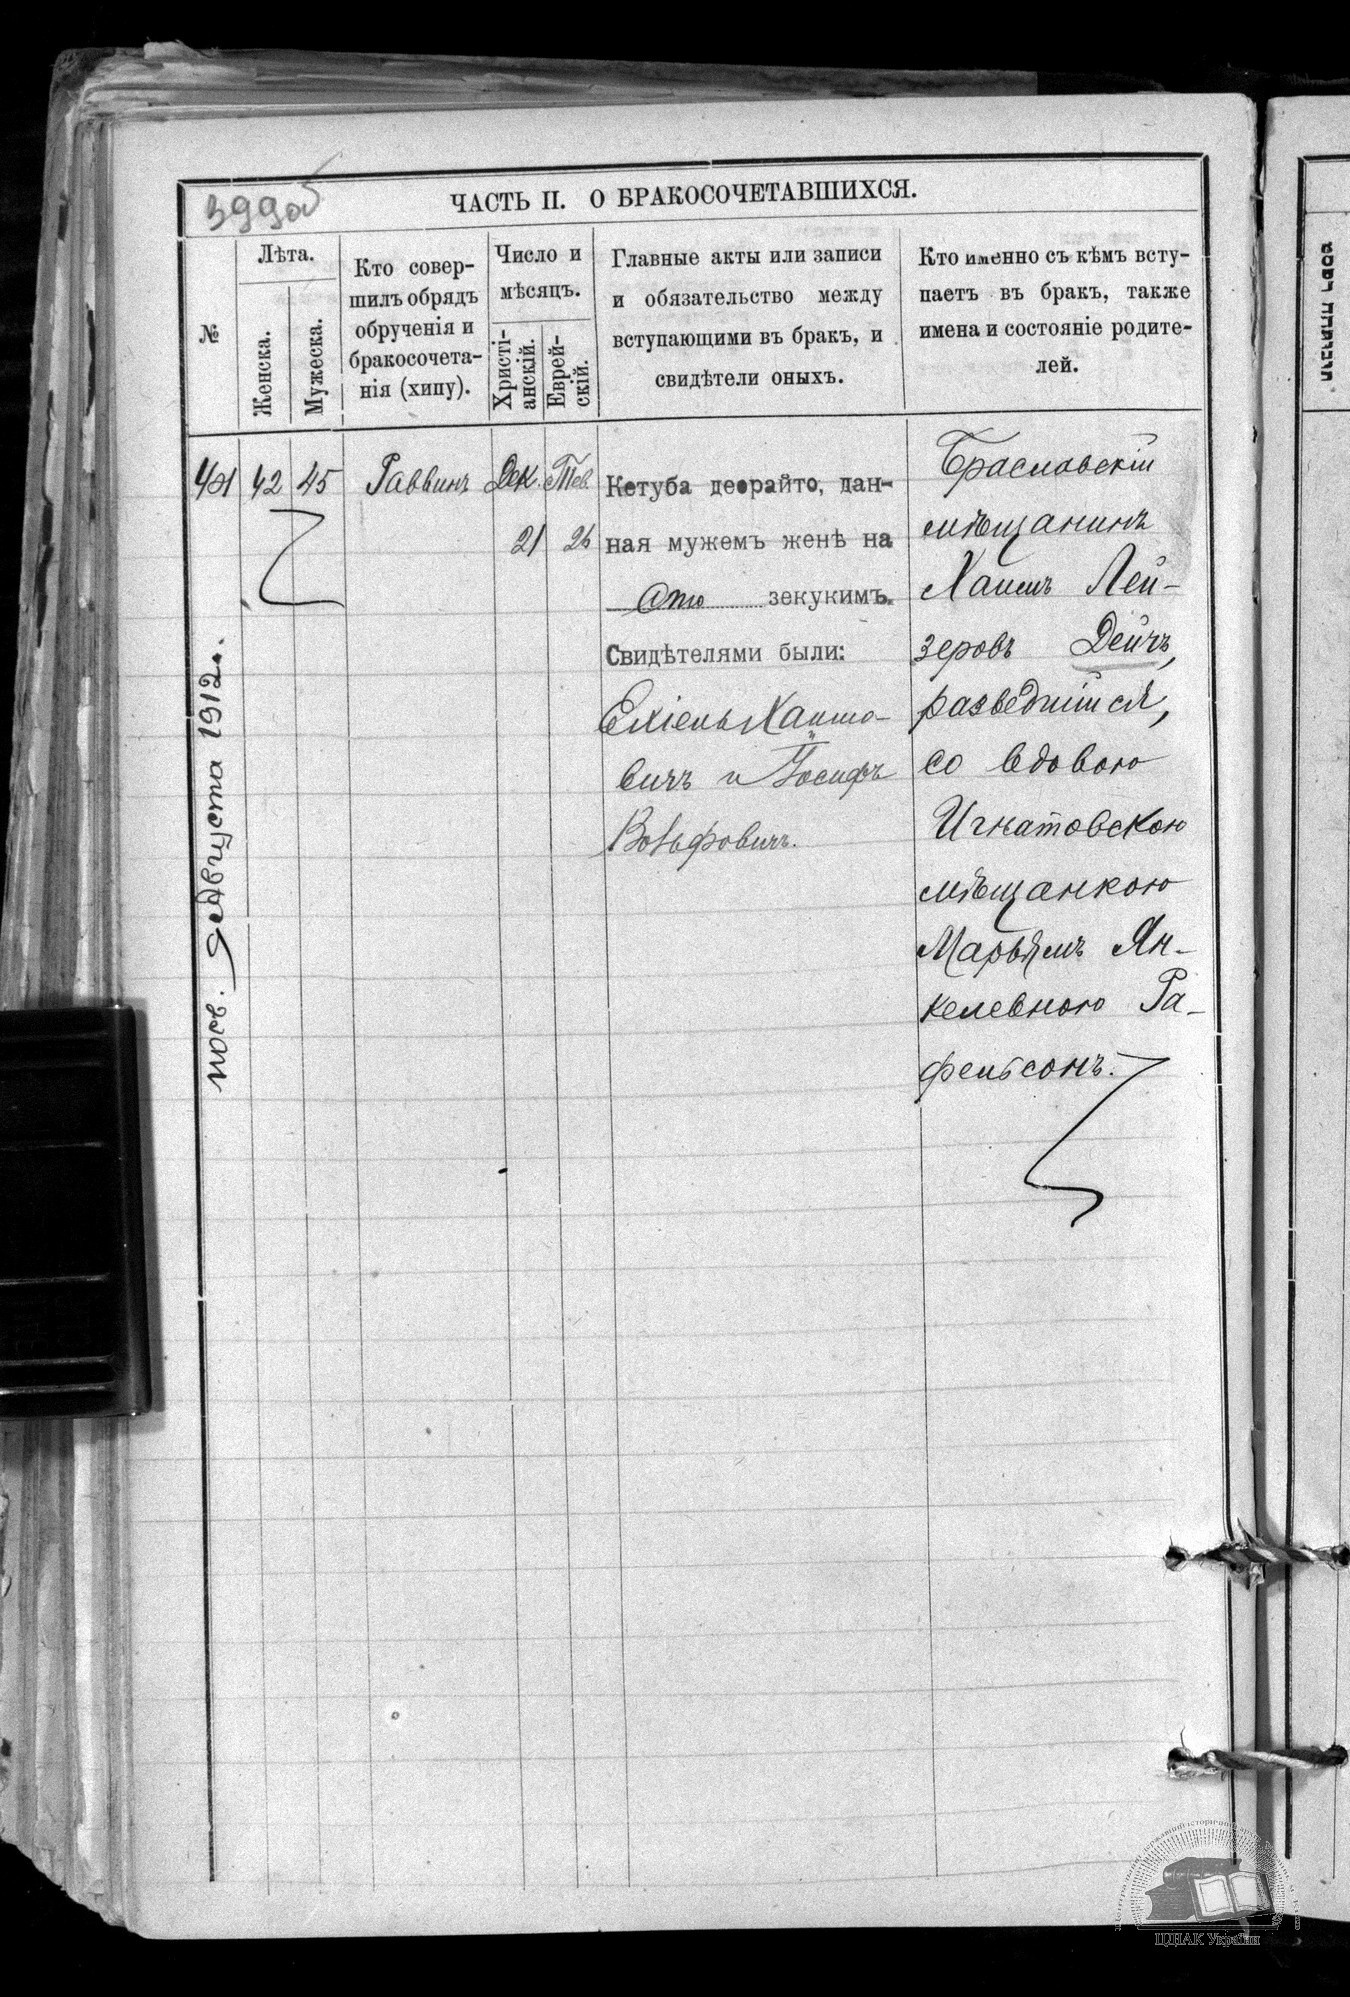 399об
ЧАСТЬ II. О БРАКОСОЧЕТАВШИХСЯ.
№
Лѣта.
Женска.
Мужеска.
Кто совер-
шилъ обрядъ
обрученія и
бракосочета-
нія (хипу).
Число и
мѣсяцъ.
Христі-
анскій.
Еврей-
скій.
Главные акты или записи
и обязательство между
вступающими въ бракъ, и
свидѣтели оныхъ.
Кто именно съ кѣмъ всту-
паетъ въ бракъ, также
имена и состояніе родите-
лей.
42
45
Раввинъ
Дек.
21
Тев.
26
Кетуба деорайто, дан-
ная мужемъ женѣ на
сто зекукимъ.
Свидѣтелями были:
Хаимо-
вичъ и Іосифъ
Вольфовичъ.
Браславскій
мѣщанинъ
Хаимъ Лей-
зеровъ Дейчъ,
разведшійся,
со вдовою
Игнатовскою
мѣщанкою
Марьямъ Ян-
келевною Ра-
фельсонъ.
Августа 1912.
ЦДІАК України